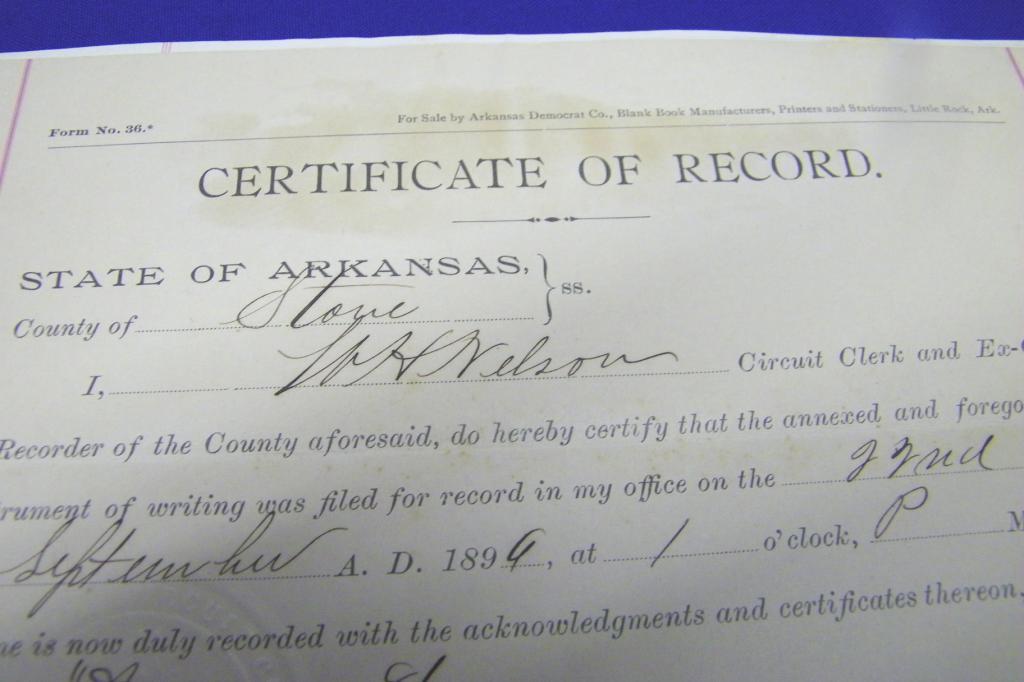 Form No. 36.* For Sale by Arkansas Democrat Co., Blank Book Manufacturers, Printers and Stationers, Little Rock, Ark.
CERTIFICATE OF RECORD.
STATE OF ARKANSAS,
County of Stone } ss.
I, W H Nelson Circuit Clerk and Ex-
Recorder of the County aforesaid, do hereby certify that the annexed and forego
rument of writing was filed for record in my office on the 22nd
September A. D. 1899, at 1 o'clock, P M
ne is now duly recorded with the acknowledgments and certificates thereon,